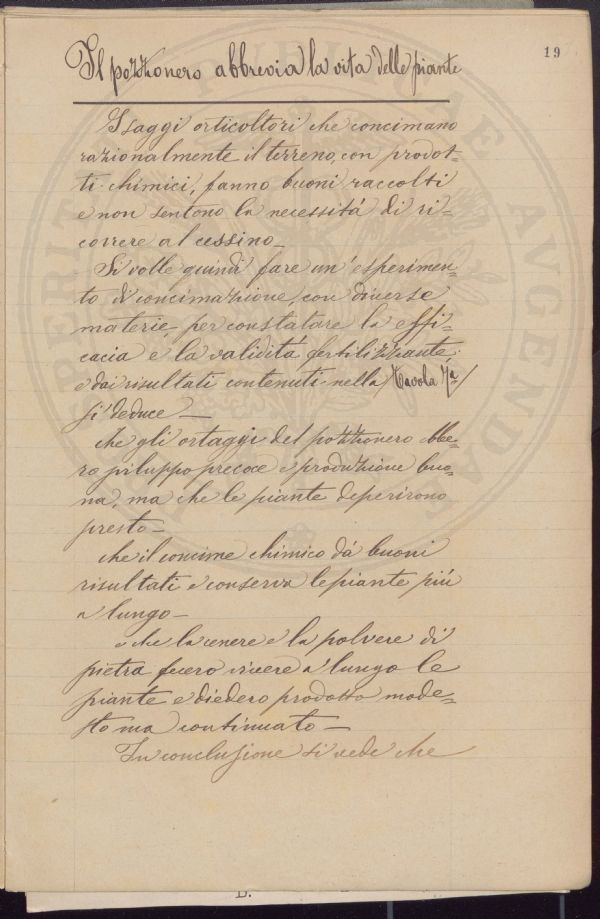 19
Il pozzonero abbrevia la vita delle piante
I saggi orticoltori che concimano
razionalmente il terreno, con prodot=
ti chimici, fanno buoni raccolti
e non sentono la necessità di ri=
correre al cessino_
Si volle quindi fare un'esperimen=
to di concimazione, con diverse
materie, per constatare la effi=
cacia e la validità fertilizzante,
e dai risultati contenuti nella Tavola 7ª
si deduce_
che gli ortaggi del pozzonero ebbe=
ro sviluppo precoce e produzione buo=
na, ma che le piante deperirono
presto_
che il concime chimico dà buoni
risultati e conserva le piante più
a lungo_
e che la cenere e la polvere di
pietra fecero vivere a lungo le
piante e diedero prodotto mode=
sto ma continuato_
In conclusione si vede che
PERITI
PVBLICAE
AVGENDAE
B.